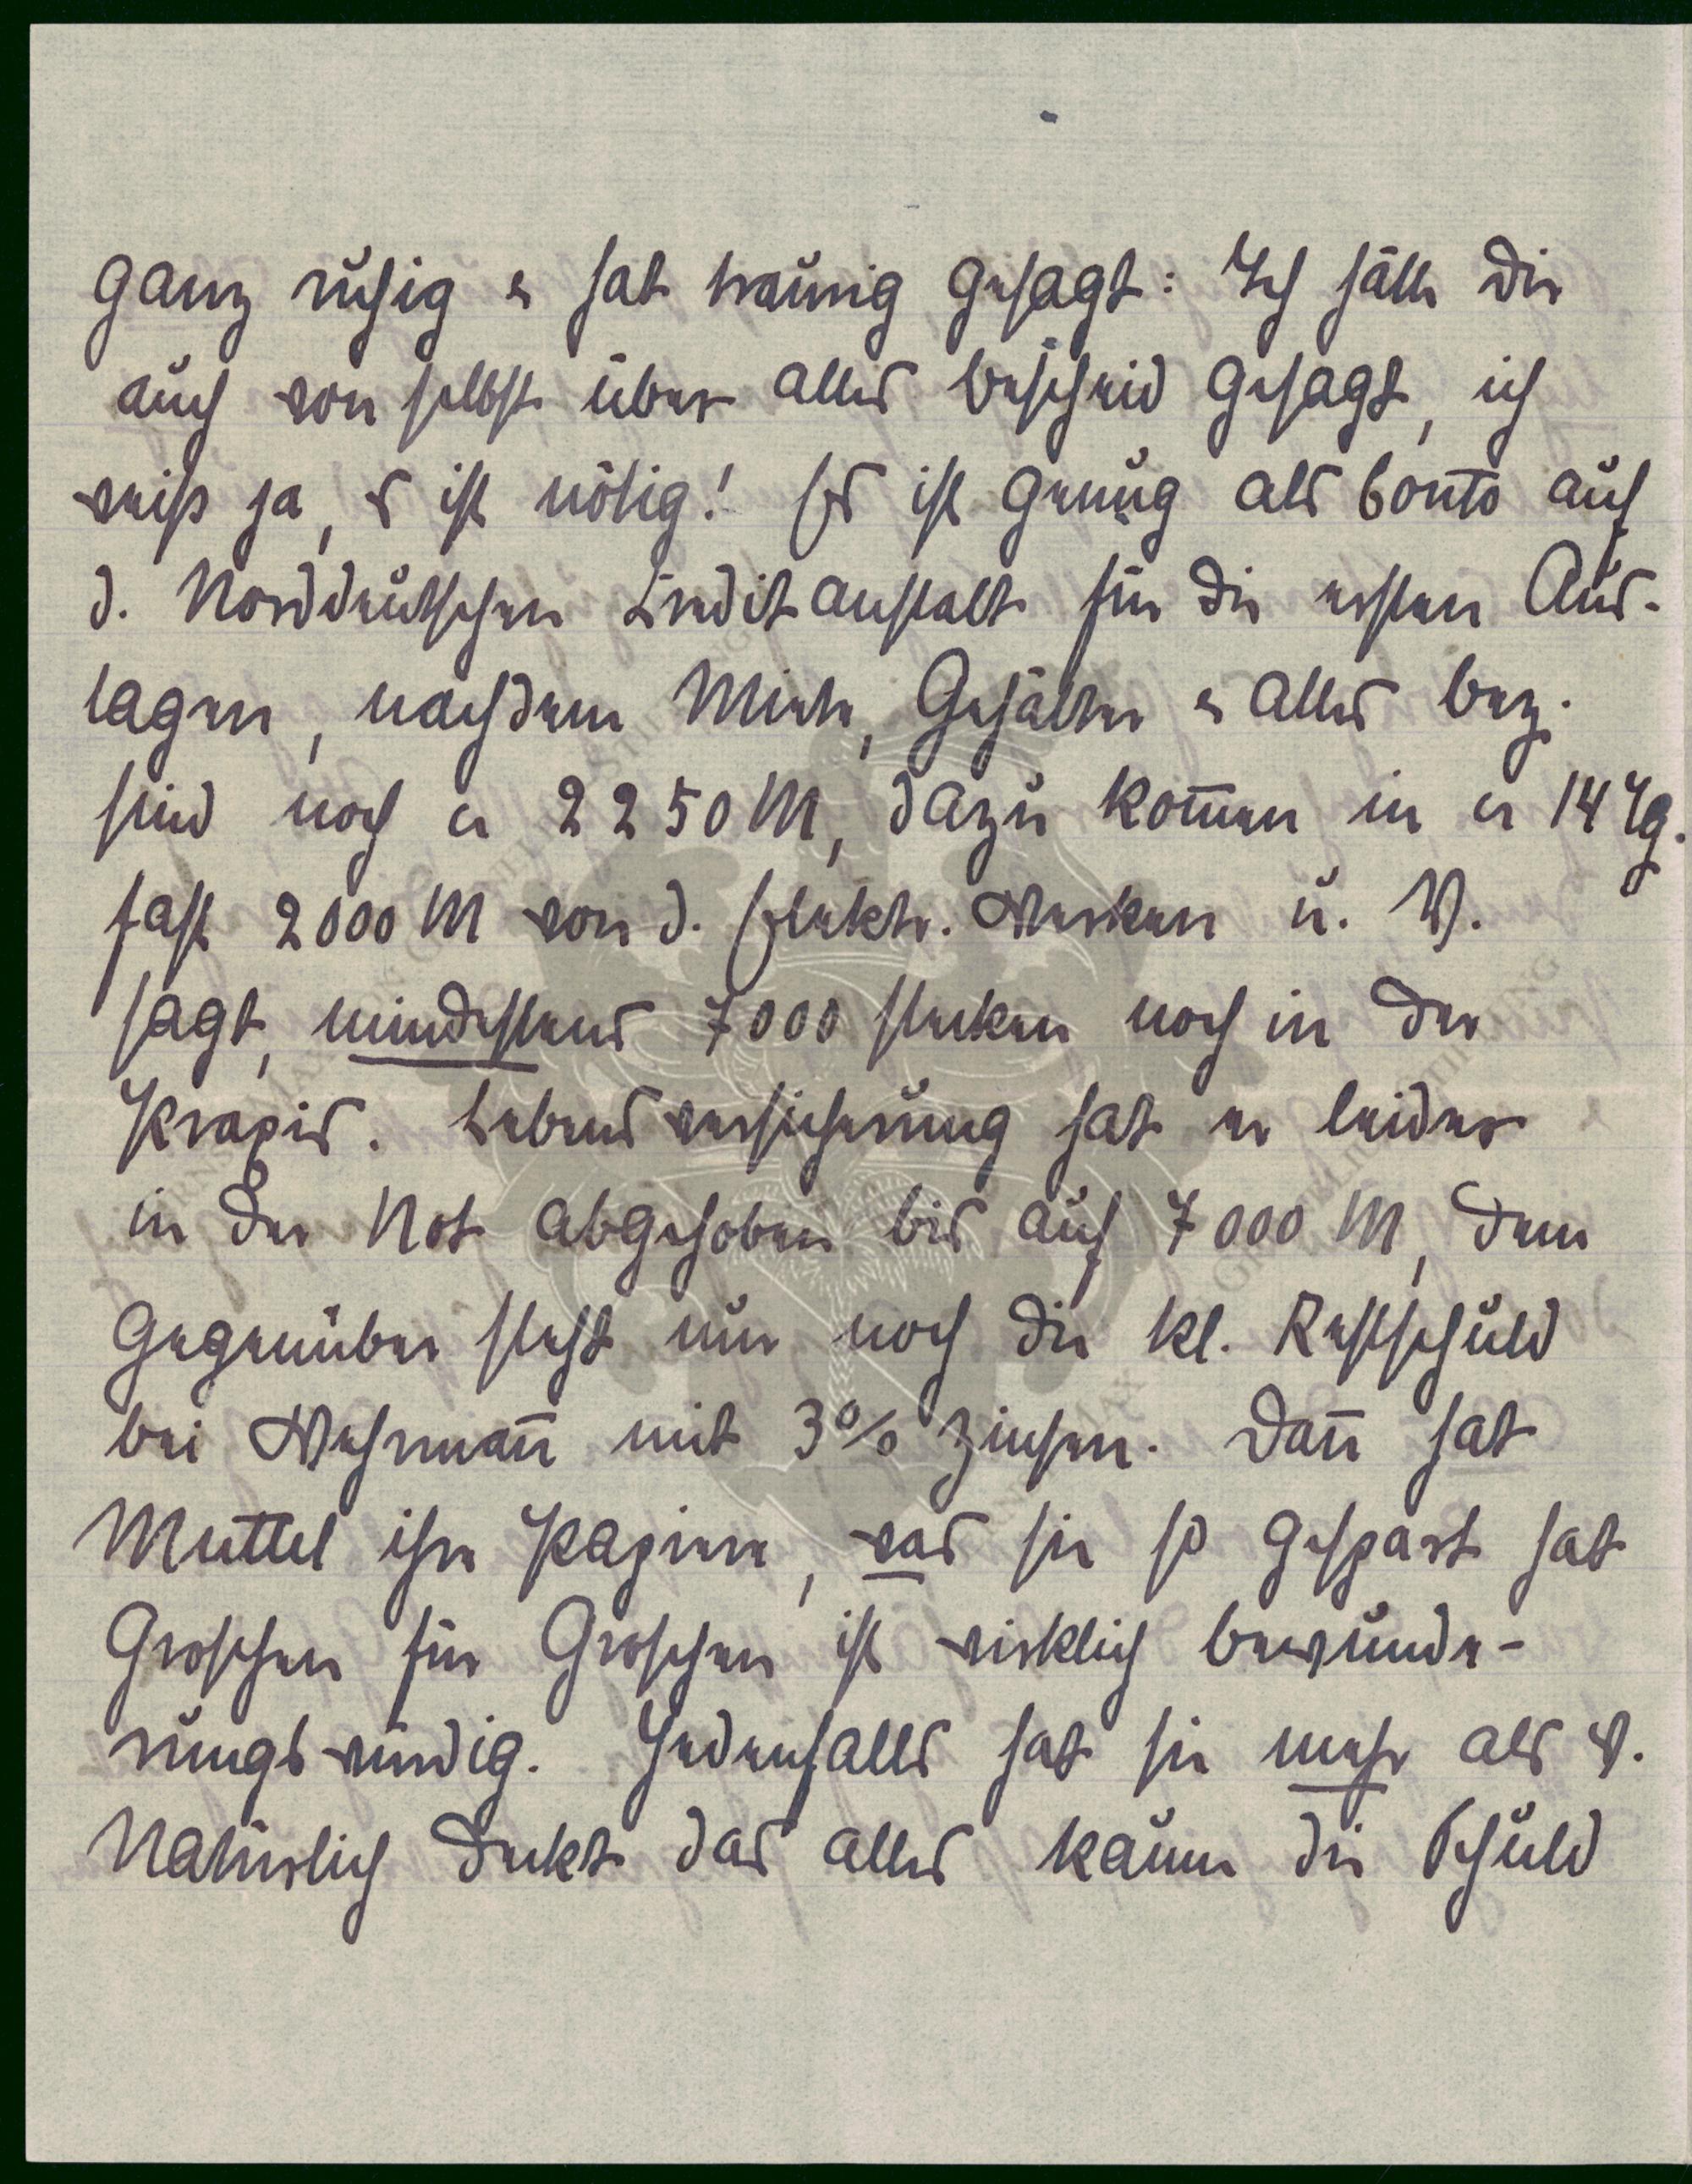 ganz ruhig & hat traurig gesagt: Ich hätte Dir
auch von selbst über alles bescheid gesagt, ich
weiss ja, es ist nötig! Es ist genug als Conto auf
d. Norddeutschen Creditanstalt für die ersten Aus-
lagen, nachdem Miete, Gehälter & alles bez.
sind noch ca 2250 M, dazu kom̄en in ca 14 Tg.
fast 2000 M von d. Elektr. Werken u. V.
sagt, mindestens 7000 stecken noch in der
Praxis. Lebensversicherung hat er leider
in der Not abgehoben bis auf 7000 M, dem
gegenüber steht nur noch die kl. Restschuld
bei Wehrman̄ mit 3% Zinsen. Dan̄ hat
Muttel ihre Papiere, was sie so gespart hat
Groschen für Groschen ist wirklich bewunde-
rungswürdig. Jedenfalls hat sie mehr als V.
Natürlich deckt das alles kaum die Schuld